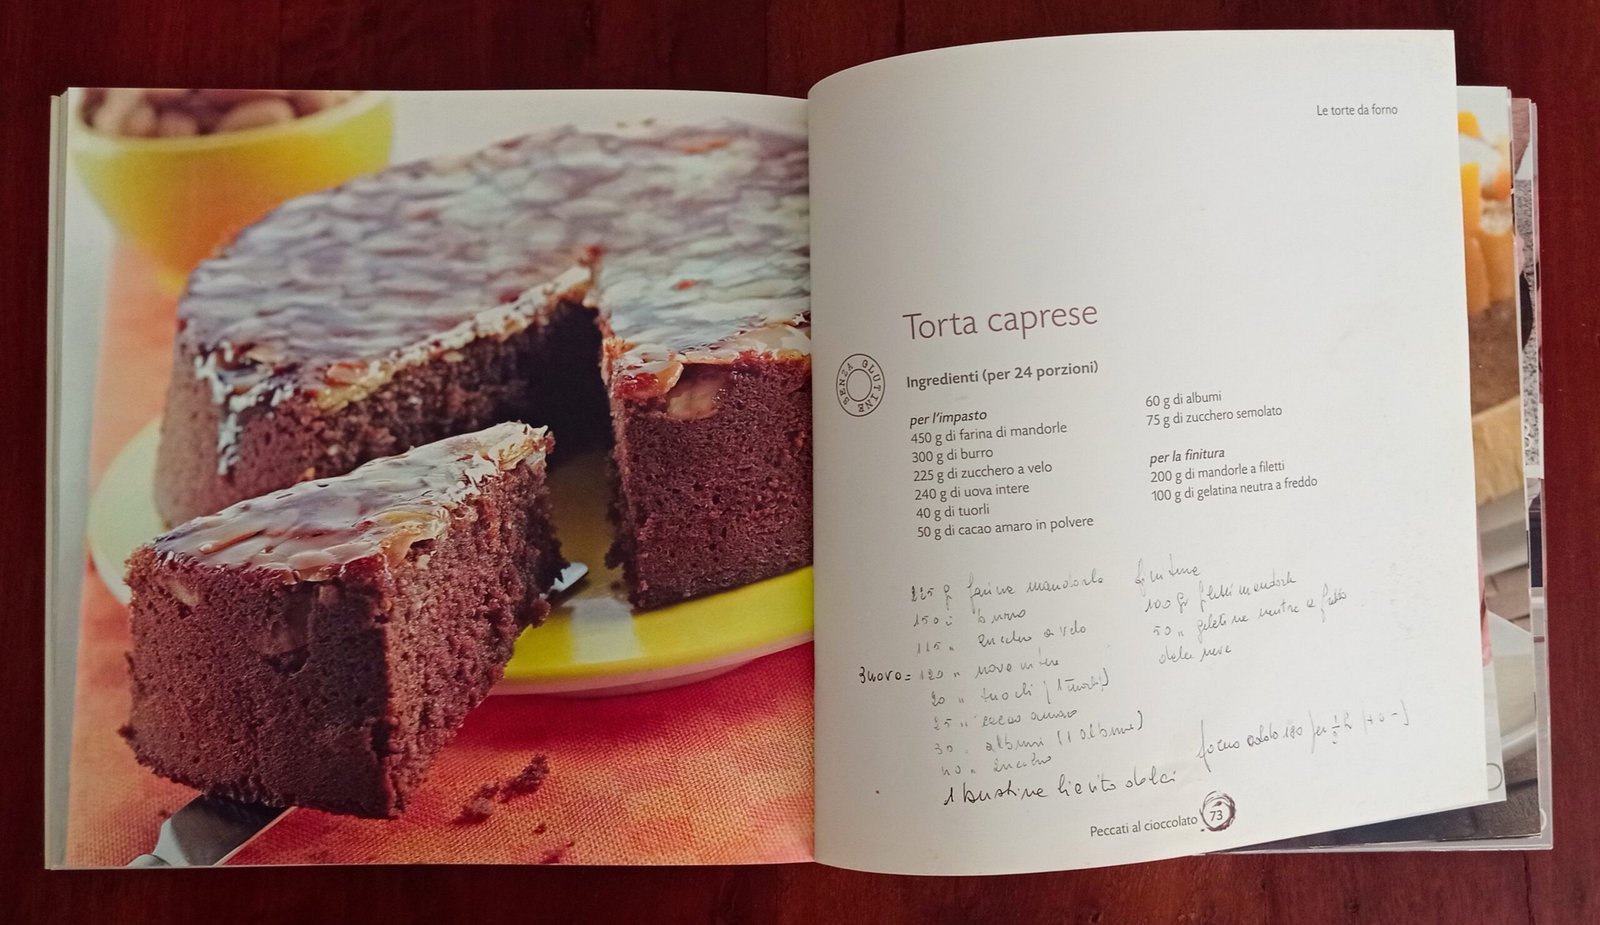 Le torte da forno
Torta caprese
SENZA GLUTINE
Ingredienti (per 24 porzioni)
per l'impasto
450 g di farina di mandorle
300 g di burro
225 g di zucchero a velo
240 g di uova intere
40 g di tuorli
50 g di cacao amaro in polvere
60 g di albumi
75 g di zucchero semolato
per la finitura
200 g di mandorle a filetti
100 g di gelatina neutra a freddo
225 g farina mandorle
150 " burro
115 " zucchero a velo
3 uovo = 120 " uova intere
20 " tuorli (1 tuorlo)
25 " cacao amaro
30 " albumi (1 albume)
40 " zucchero
1 bustina lievito dolci
finitura
100 gr filetti mandorle
50 " gelatina neutra a freddo
neve
forno caldo 180 per ½ h (+ o -)
Peccati al cioccolato 73